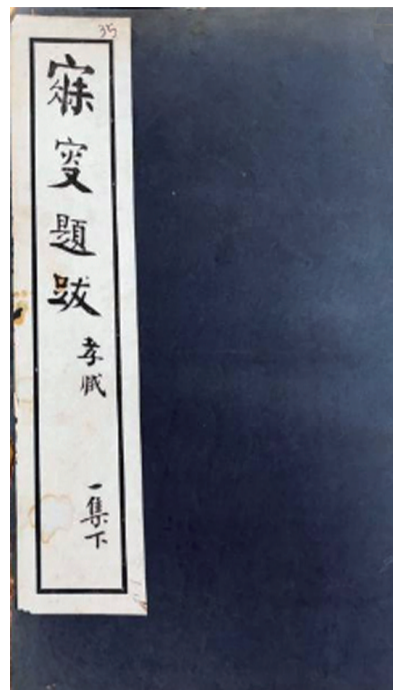 35
寐叟題跋
孝臧
一集下